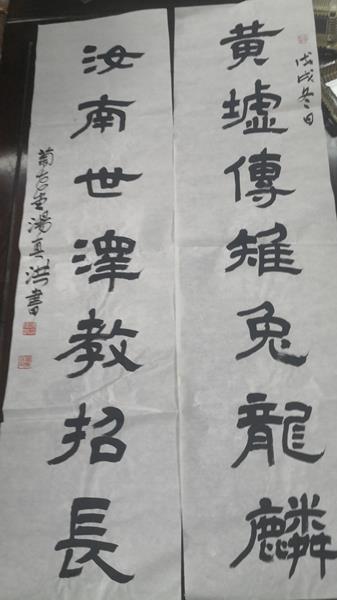 戊戌冬日
黄墟傳雉兔龍麟
汝南世澤教招長
湯真洪書